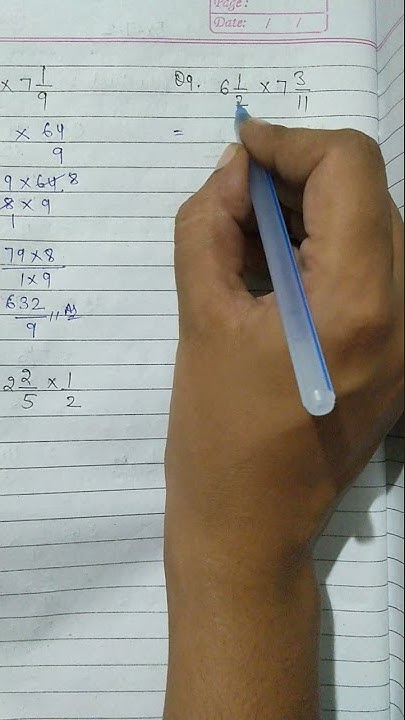 Page:
Date: / /
× 7 1/9
× 64/9
9 × 64 8
8 × 9
1
79 × 8
1 × 9
632/9 // Ans
2 2/5 × 1/2
Q9. 6 1/2 × 7 3/11
=